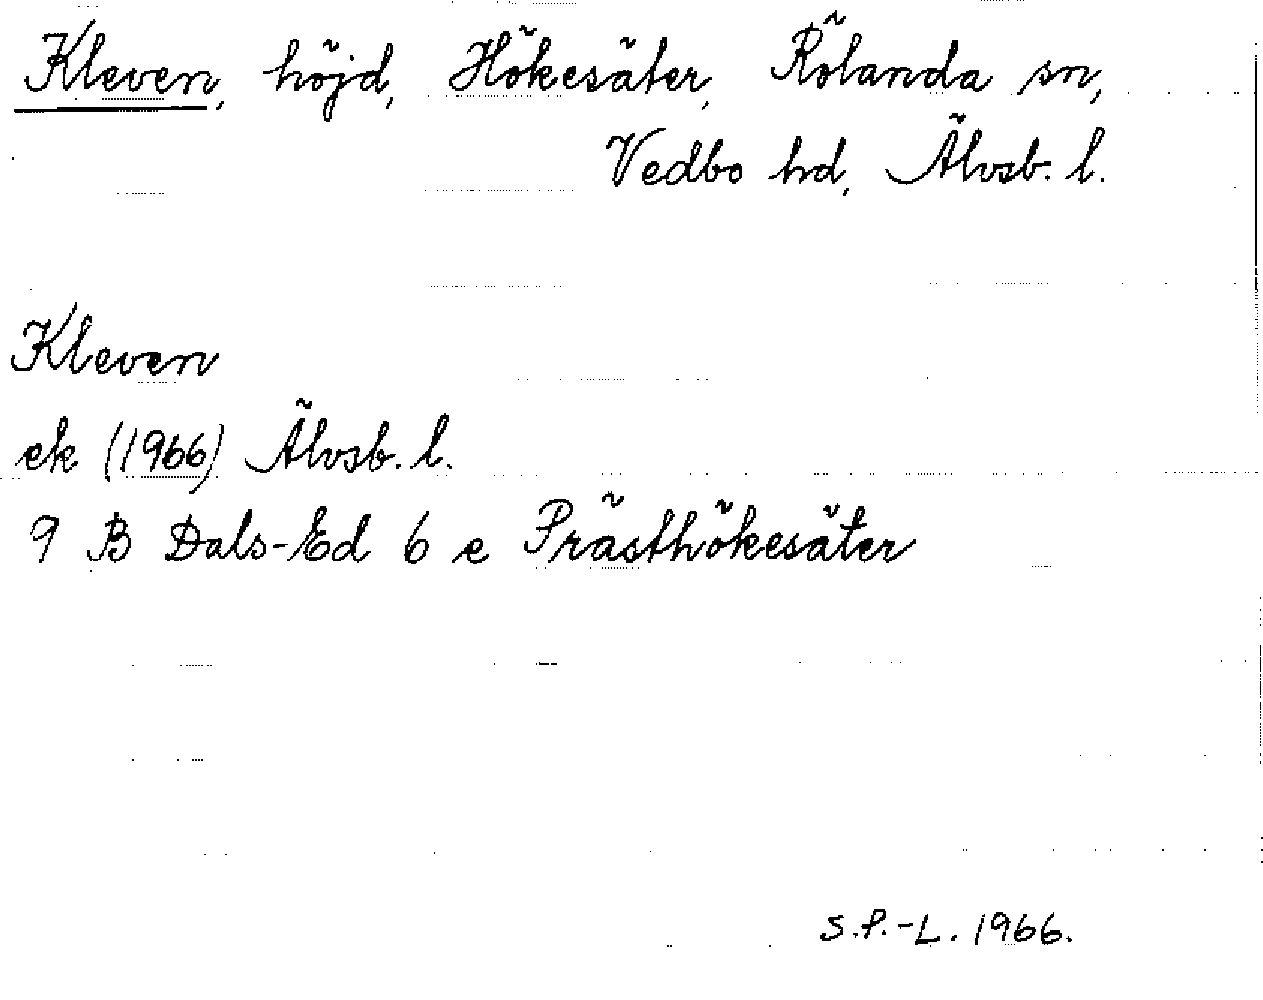 Kleven, höjd, Hökesäter, Rölanda sn,
Vedbo hd, Älvsb. l.
Kleven
ek (1966) Älvsb. l.
9 B Dals-Ed 6 e Prästhökesäter
S.P.-L. 1966.